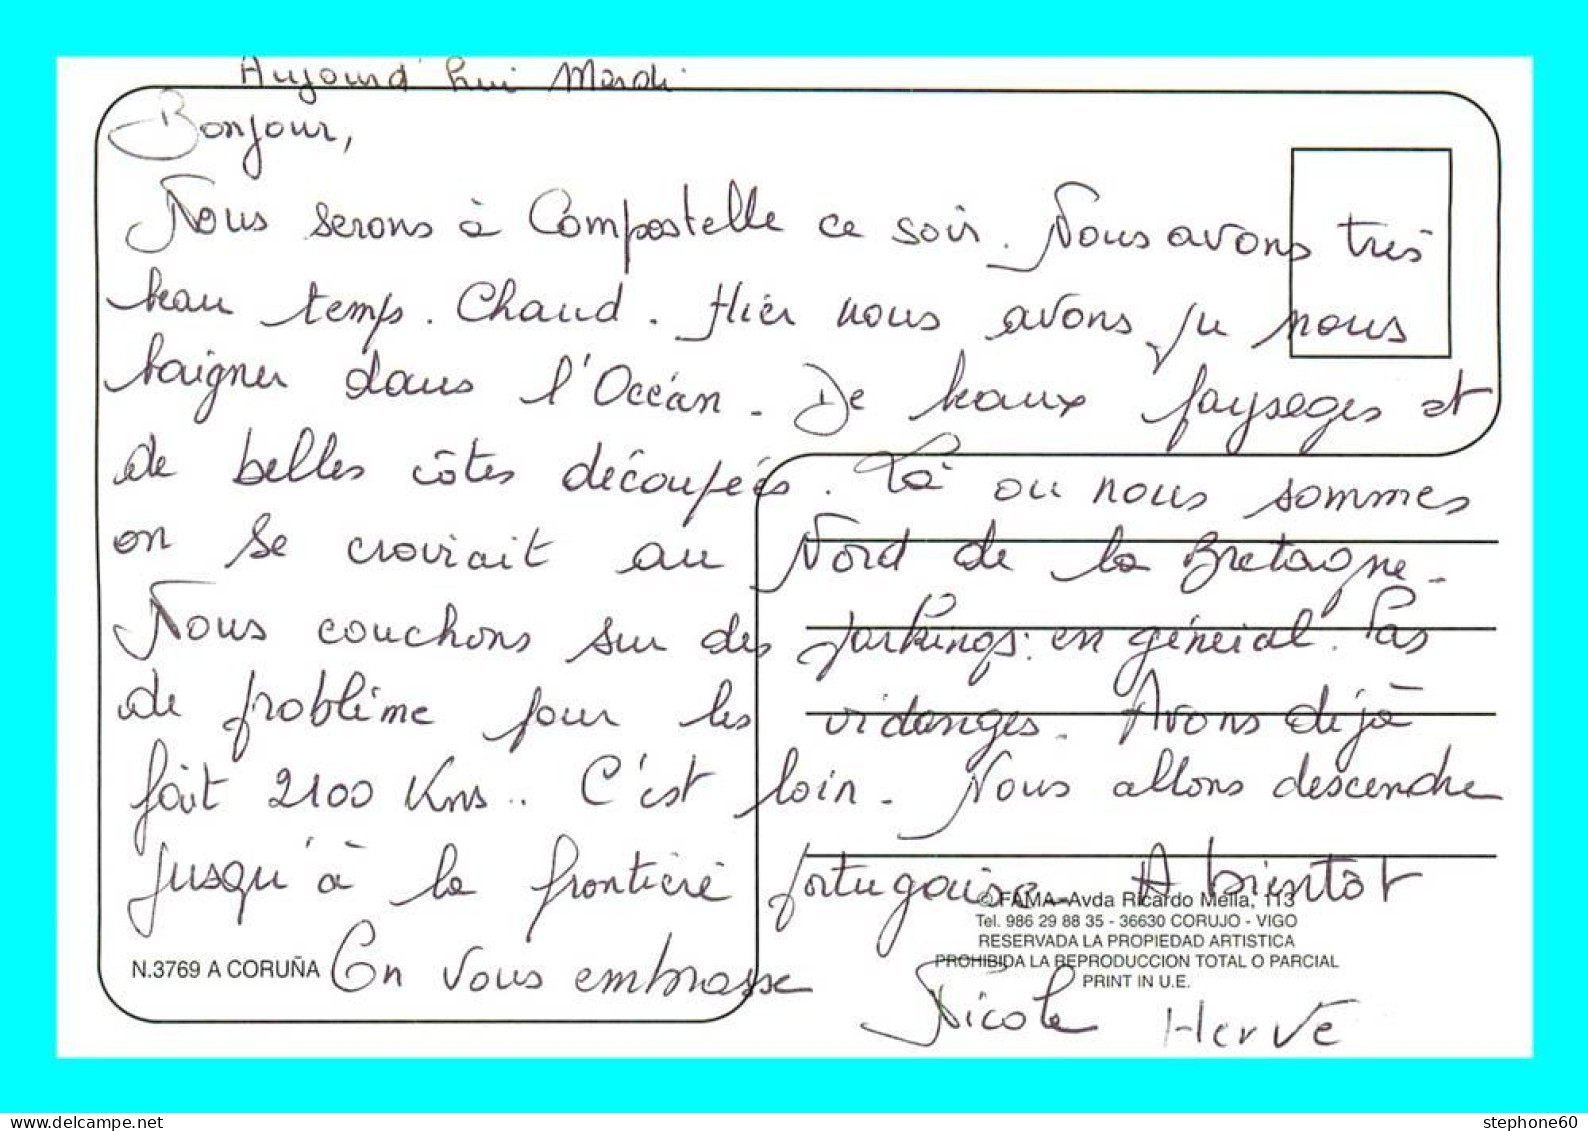 Aujourd'hui Mardi
Bonjour,
Nous serons à Compostelle ce soir. Nous avons très
beau temps. Chaud. Hier nous avons pu nous
baigner dans l'Océan. De beaux paysages et
de belles côtes découpées. Là ou nous sommes
on se croirait au Nord de la Bretagne.
Nous couchons sur des parkings en général. Pas
de problème pour les vidanges. Avons déjà
fait 2100 Kms.. C'est loin. Nous allons descendre
jusqu'à la frontière portugaise. A bientôt
© FAMA-Avda Ricardo Mella, 113
Tel. 986 29 88 35 - 36630 CORUJO - VIGO
RESERVADA LA PROPIEDAD ARTISTICA
PROHIBIDA LA REPRODUCCION TOTAL O PARCIAL
PRINT IN U.E.
N.3769 A CORUÑA
On vous embrasse
Nicole Hervé
stephone60